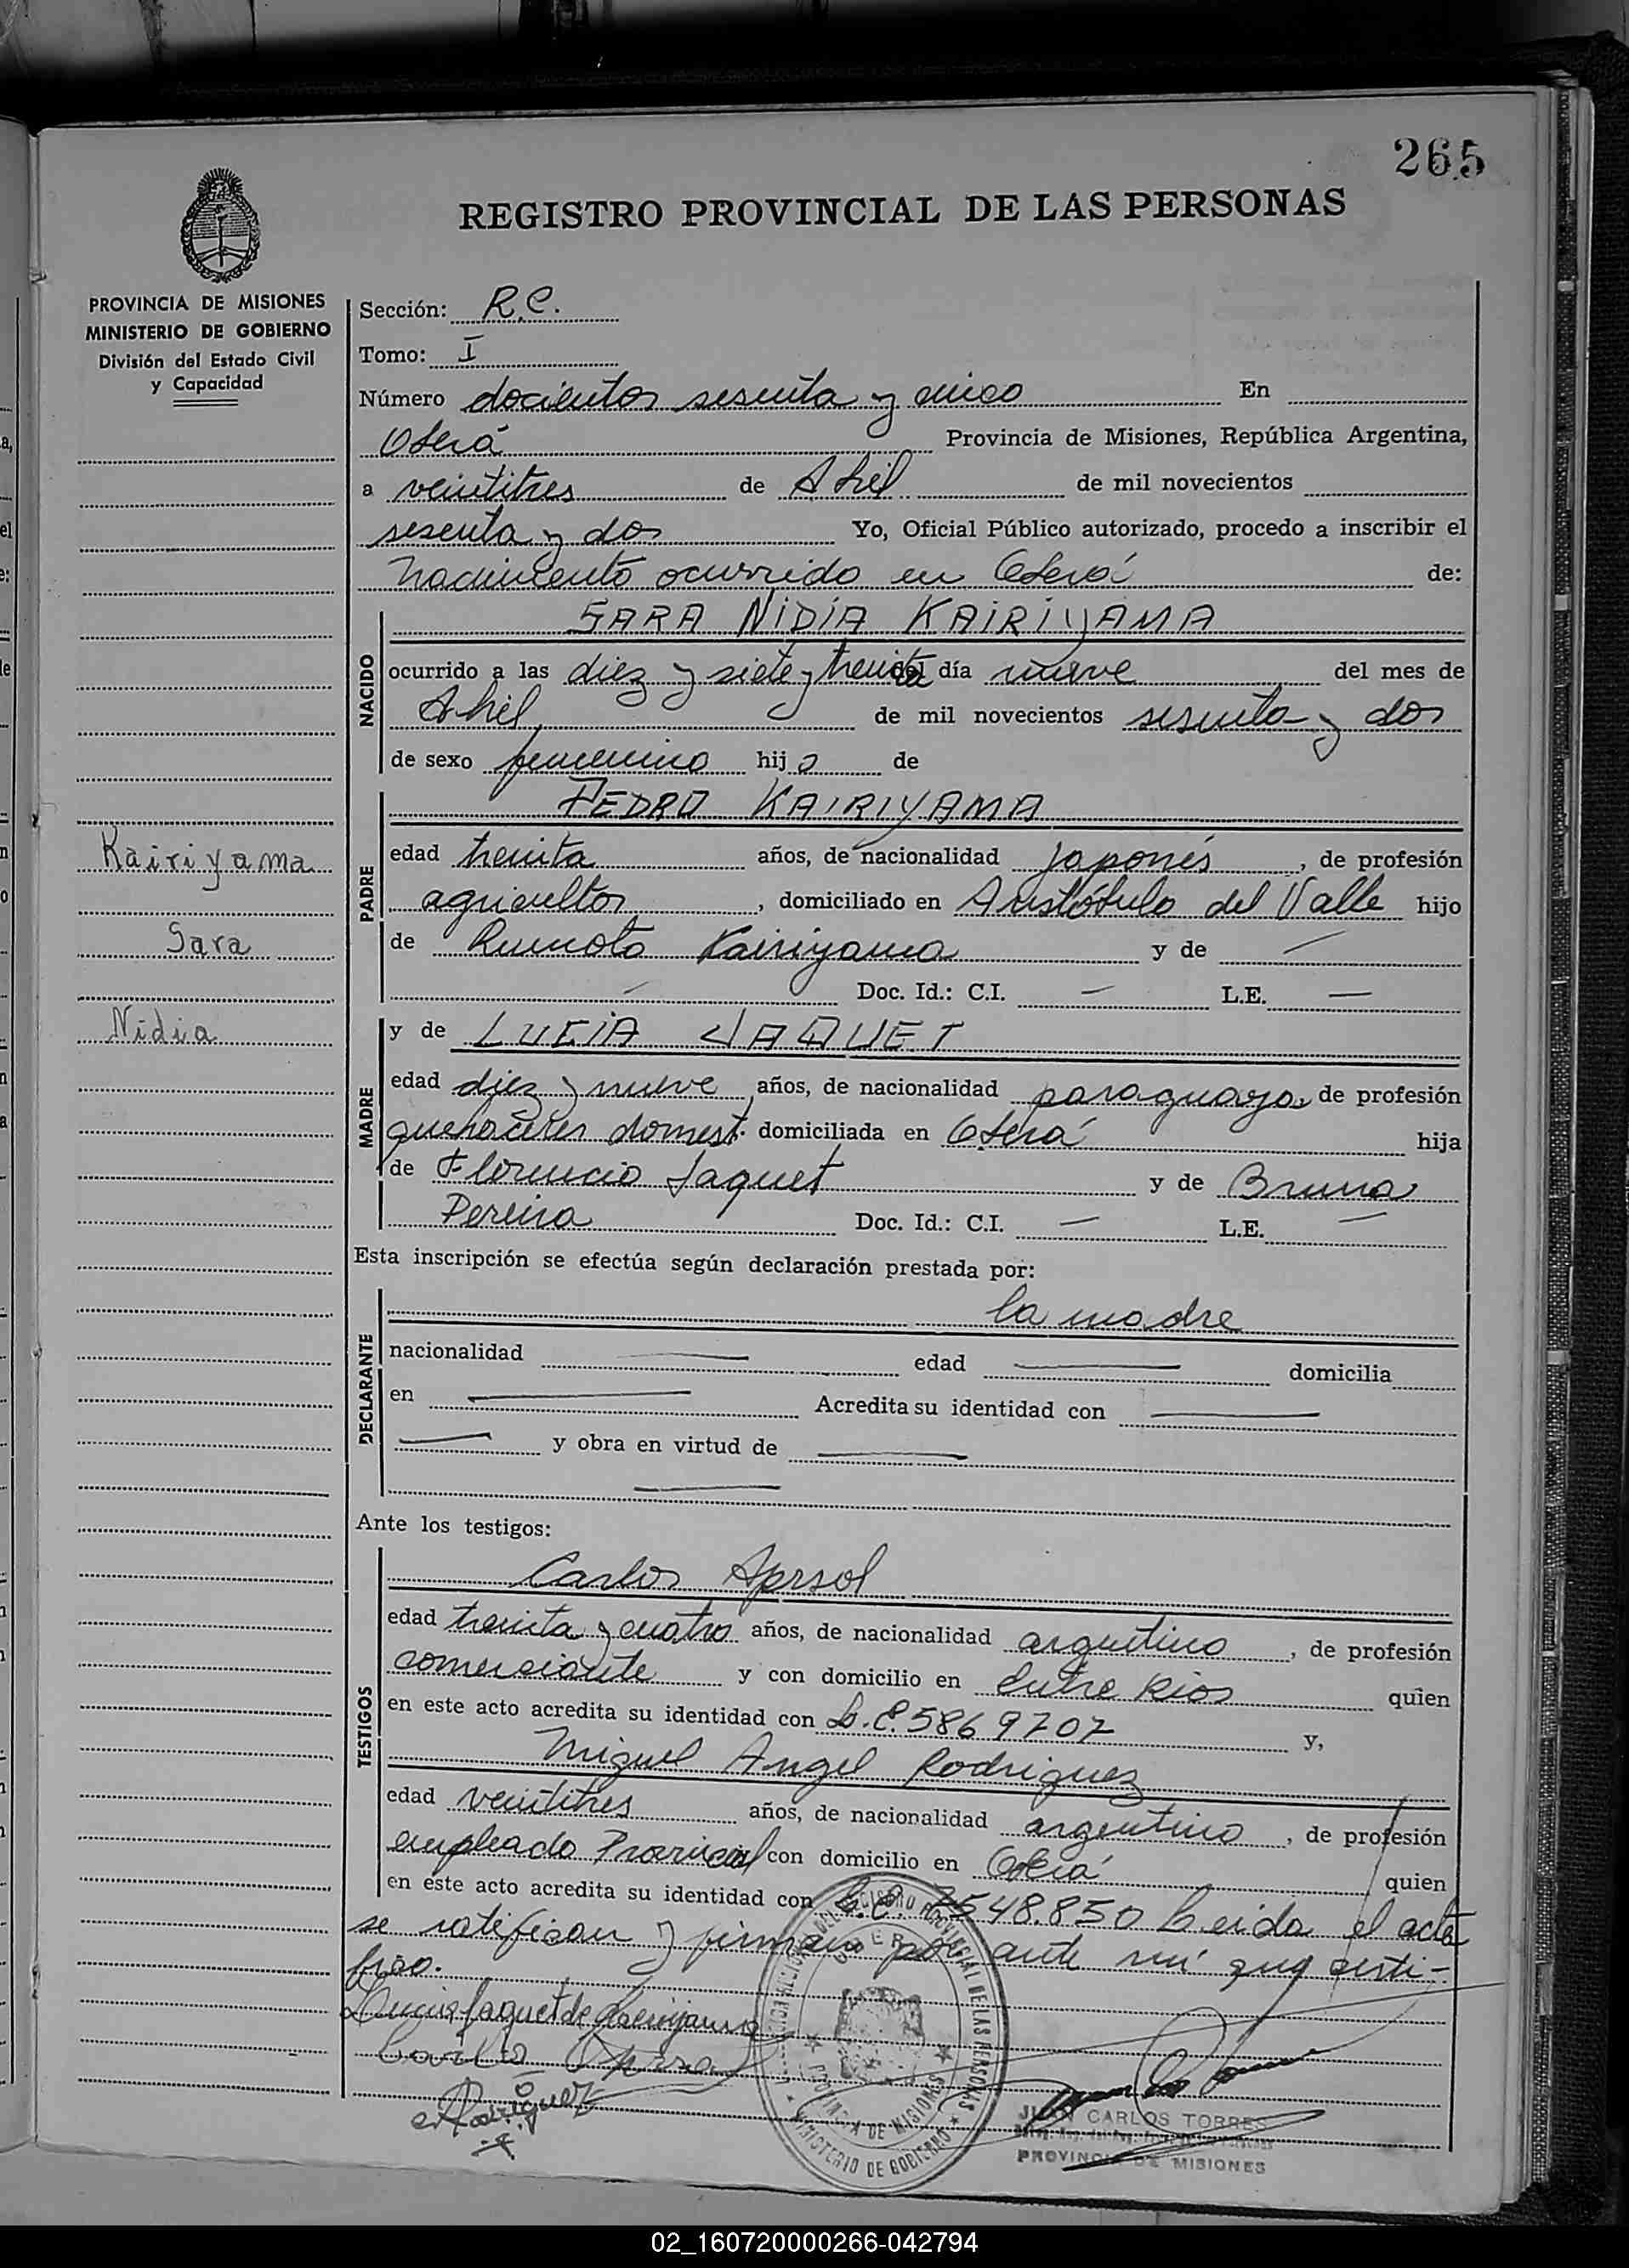 265
REGISTRO PROVINCIAL DE LAS PERSONAS
PROVINCIA DE MISIONES
MINISTERIO DE GOBIERNO
División del Estado Civil
y Capacidad
Sección: R.C.
Tomo: I
Número docientos sesenta y cinco En
Oberá Provincia de Misiones, República Argentina,
a veintitres de Abril de mil novecientos
sesenta y dos Yo, Oficial Público autorizado, procedo a inscribir el
nacimiento ocurrido en Oberá de:
NACIDO
SARA NIDIA KAIRIYAMA
ocurrido a las diez y siete y treinta del día nueve del mes de
Abril de mil novecientos sesenta y dos
de sexo femenino hija de
PADRE
PEDRO KAIRIYAMA
edad treinta años, de nacionalidad japonés, de profesión
agricultor, domiciliado en Aristóbulo del Valle hijo
de Kairiyama y de —
— Doc. Id.: C.I. — L.E. —
Kairiyama
Sara
Nidia
MADRE
y de LUCIA JAQUET
edad diez y nueve años, de nacionalidad paraguaya, de profesión
quehaceres domest. domiciliada en Oberá hija
de Florencio Jaquet y de Bruna
Pereira Doc. Id.: C.I. — L.E. —
Esta inscripción se efectúa según declaración prestada por:
DECLARANTE
la madre
nacionalidad — edad — domicilia
en — Acredita su identidad con —
— y obra en virtud de —
—
Ante los testigos:
TESTIGOS
Carlos Apesol
edad treinta y cuatro años, de nacionalidad argentino, de profesión
comerciante y con domicilio en Entre Rios quien
en este acto acredita su identidad con L.E. 5869707 y,
Miguel Angel Rodriguez
edad veintitres años, de nacionalidad argentino, de profesión
empleado Provincial con domicilio en Oberá quien
en este acto acredita su identidad con L.E. 7548.850 Leida el acta
se ratifican y firman por ante mí que certi-
fico.
Lucia Jaquet de Kairiyama
Carlos
Rodriguez
REGISTRO PROVINCIAL DE LAS PERSONAS
OBERÁ
PROVINCIA DE MISIONES
MINISTERIO DE GOBIERNO
JUAN CARLOS TORRES
PROVINCIA DE MISIONES
02_160720000266-042794